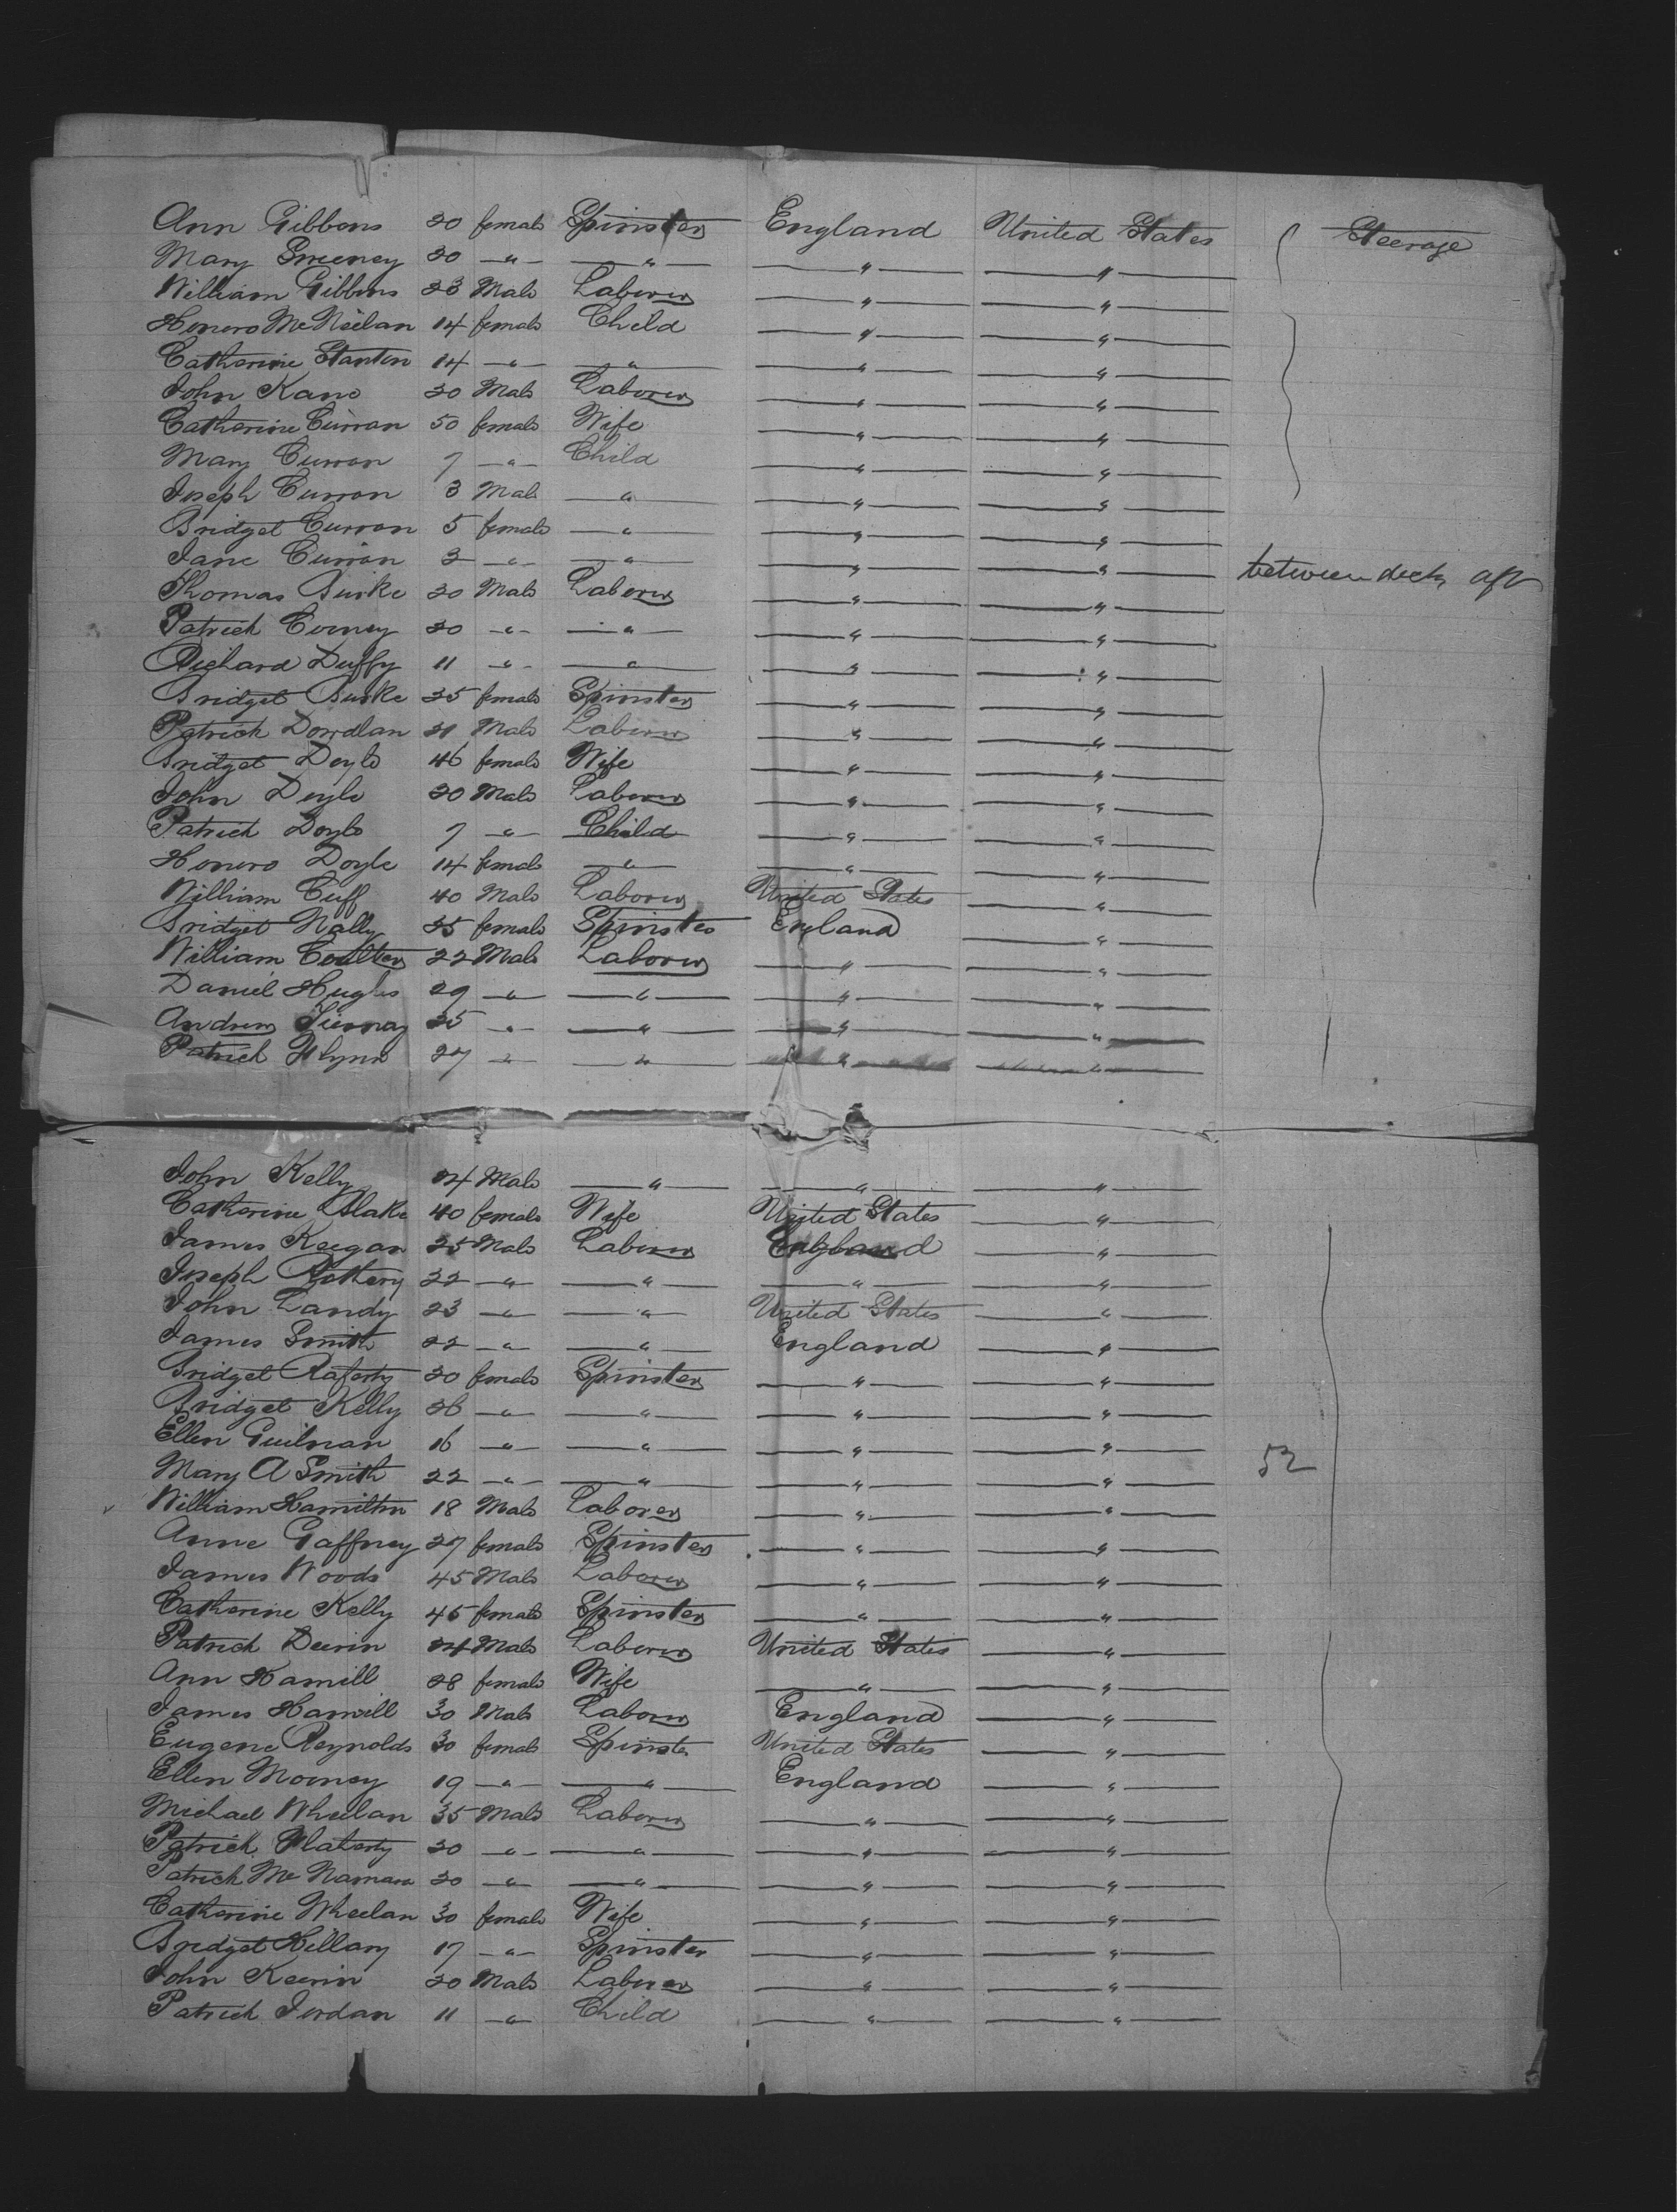 Ann Gibbons 20 female Spinster England United States Steerage
Mary Sweeney 20 " " " "
William Gibbons 23 Male Laborer " "
Honora McNeelan 14 female Child " "
Catherine Stanton 14 " " " "
John Kane 20 Male Laborer " "
Catherine Curran 50 female Wife " "
Mary Curran 7 " Child " "
Joseph Curran 3 Male " " "
Bridget Curran 5 female " " "
Jane Curran 2 " " " " between decks aft
Thomas Burke 20 Male Laborer " "
Patrick 20 " " " "
Richard Duffy 11 " " " "
Bridget Burke 25 female Spinster " "
Patrick Dowdlan 21 Male Laborer " "
Bridget Doyle 46 female Wife " "
John Doyle 20 Male Laborer " "
Patrick Doyle 7 " Child " "
Honora Doyle 14 female " " "
William Cuff 40 Male Laborer United States "
Bridget Nally 25 female Spinster England "
William Coulter 22 Male Laborer " "
Daniel Hughes 29 " " " "
Andrew 25 " " " "
Patrick Flynn 27 " " " "
John Kelly 24 Male " " "
Catherine Blake 40 female Wife United States "
James Keegan 25 Male Laborer England "
Joseph 22 " " " "
John Landy 23 " " United States "
James Smith 22 " " England "
Bridget Raferty 20 female Spinster " "
Bridget Kelly 26 " " " "
Ellen Guilnan 16 " " " "
Mary A Smith 22 " " " " 52
William Hamilton 18 Male Laborer " "
Anne Gaffney 27 female Spinster " "
James Woods 45 Male Laborer " "
Catherine Kelly 45 female Spinster " "
Patrick Deerin 24 Male Laborer United States "
Ann Hamill 28 female Wife " "
James Hamill 30 Male Laborer England "
Eugene Reynolds 30 female Spinster United States "
Ellen 19 " " England "
Michael Wheelan 35 Male Laborer " "
Patrick Flaherty 20 " " " "
Patrick McNamara 20 " " " "
Catherine Wheelan 30 female Wife " "
Bridget Hillary 17 " Spinster " "
John Keerin 20 Male Laborer " "
Patrick Jordan 11 " Child " "